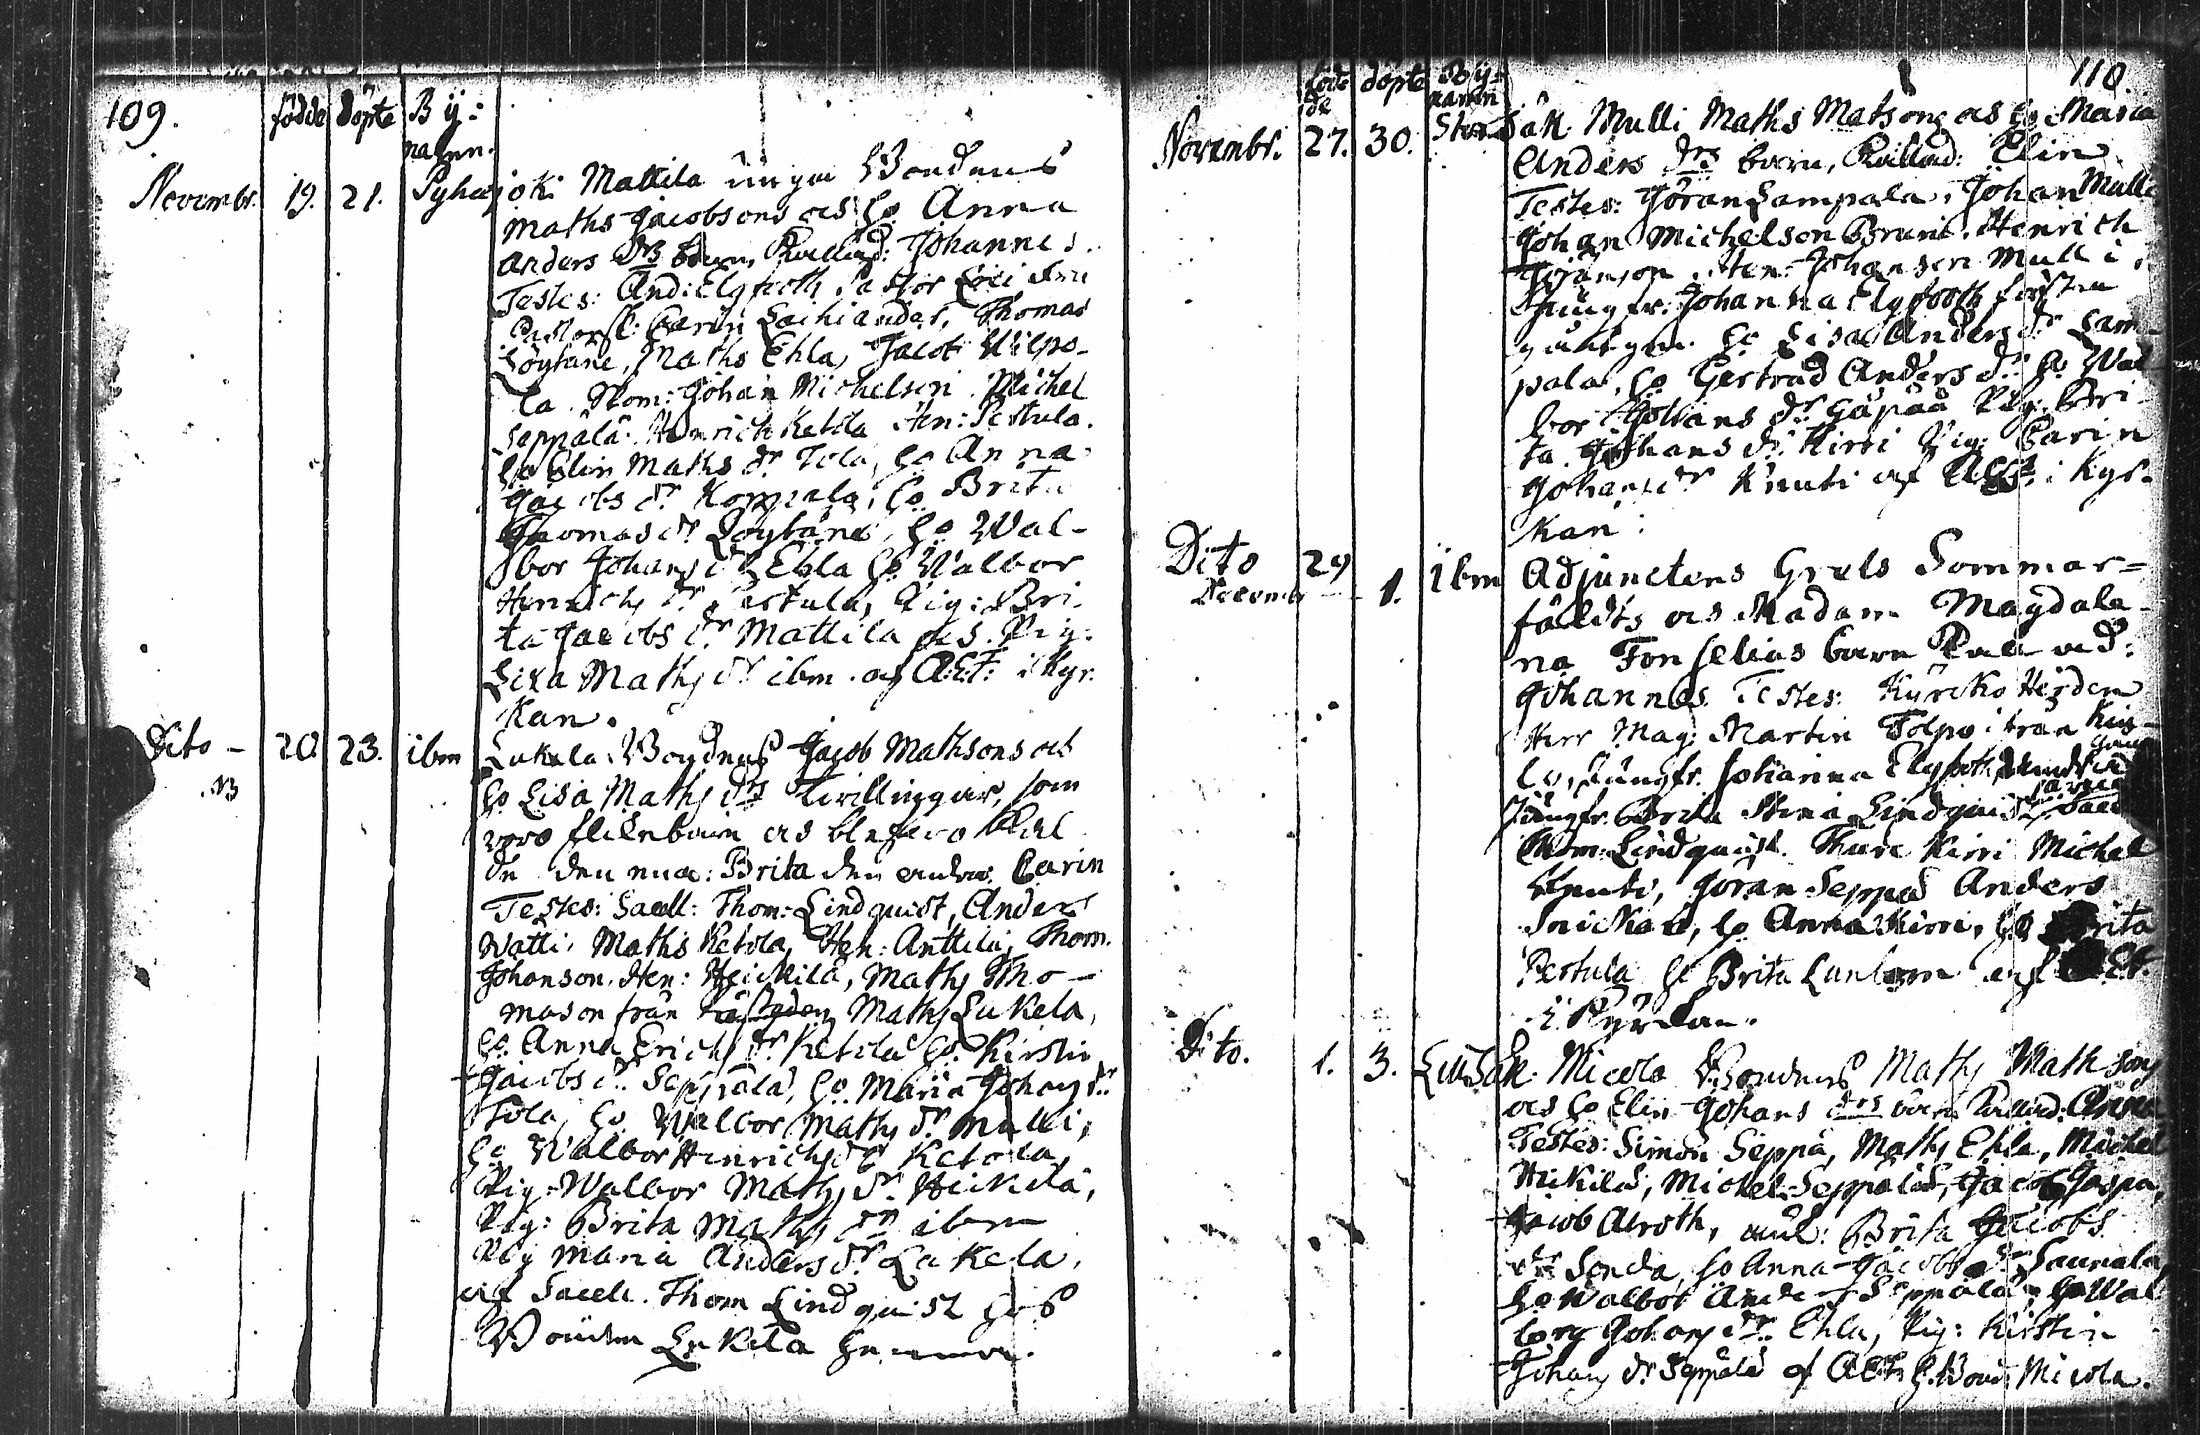 109.
födde döpte By=
namn.
Novembr. 19. 21. Pyhajoki Mattila unga Bondens
Maths Jacobsons och ho Anna
Anders drs barn, Kallad: Johannes.
Testes: And: Elgfooth, Pastor Loci
Pastorsk: Carin Lachiander, Thomas
Löytäne, Maths Ehla, Jacob Wilpo-
la. Johan Michelson. Michel
Seppälä. Henrich Ketola Hen: Pestula.
ho Elin Maths dr Tola, ho Anna
Jacobs dr Korpela, ho Brita
Thomas dr Löytäne, ho Wal-
bor Johans dr Ehla ho Walbor
Henrichs dr Pestula, Pig: Bri-
ta Jacobs dr Mattila och Pig:
Lisa Maths dr ibm. af A:E:F: i Kyr-
kan.
Dito - 20. 23. ibm Lukela Bondens Jacob Mathsons och
NB ho Lisa Maths drs Tvillingar, som
voro flickebarn och blefvo Kal-
de den ena: Brita den andra Carin
Testes: Sacell: Thom: Lindquist, Anders
Watti, Maths Ketola, Hen: Anttila, Thom.
Johanson. Hen: Heickilä, Maths Tho-
mason från Maths Lukela,
ho Anna Erichs dr Ketola ho Kirstin
Jacobs dr Seppälä, ho Maria Johans dr
Tola, ho Walbor Maths dr Mulli,
ho Walbor Henrichs dr Ketola,
Pig: Walbor Maths dr Heickilä,
Pig: Brita Maths dr ibm
Pig Maria Anders dr Lukela,
af Sacell. Thom Lindquist hos
Bonden Lukela hemma.
110.
födde döpte By=
namn
Novembr. 27. 30. Storsåk. Mulli Maths Matsons och ho Maria
Anders drs barn, Kallad: Elin
Testes: Jöran Lampala, Johan Mulli
Johan Michelson Bruni. Henrich
Jöranson. Hen: Johanson Mulli,
Jungfr: Johanna Elgfooth
ho Lisa Anders dr Lam-
pala, ho Gertrud Anders dr ho Wal-
bor Johans dr Gåpää Pig: Bri-
ta Johans dr Kirri Pig: Carin
Johans dr Knuti af A:E:F: i Kyr-
kan:
Dito 29 ibm Adjunctens Grels Sommar=
Decembr - 1. fäldts och Madam Magdale-
na Fonselius barn Kallad:
Johannes. Testes: Kyrcko Herden
Herr Mag: Martin Tolpo från
Jungfr. Johanna Elgfooth
Jungfr. Stina Lindquist,
Thom: Lindquist. Thure Kirri Michel
Knuti, Jöran Seppä Anders
Snickar, ho Anna Kirri, ho Brita
Pestula ho Brita Lunbom af
i Kyrkan.
Dito. 1. 3. Micola Bondens Maths Mathsons
och ho Elin Johans drs barn Kallad: Anna
Testes: Simon Seppä, Maths Ehla, Michel
Hickilä, Michel Seppälä, Jacob
Jacob Alroth, Brita Jacobs
dr Sonda, ho Anna Jacobs dr Saunala,
ho Walbor Seppälä, ho Wal-
borg Johans dr Ehla, Pig: Kirstin
Johans dr Seppälä af A:E:F: h. Bond: Micola.